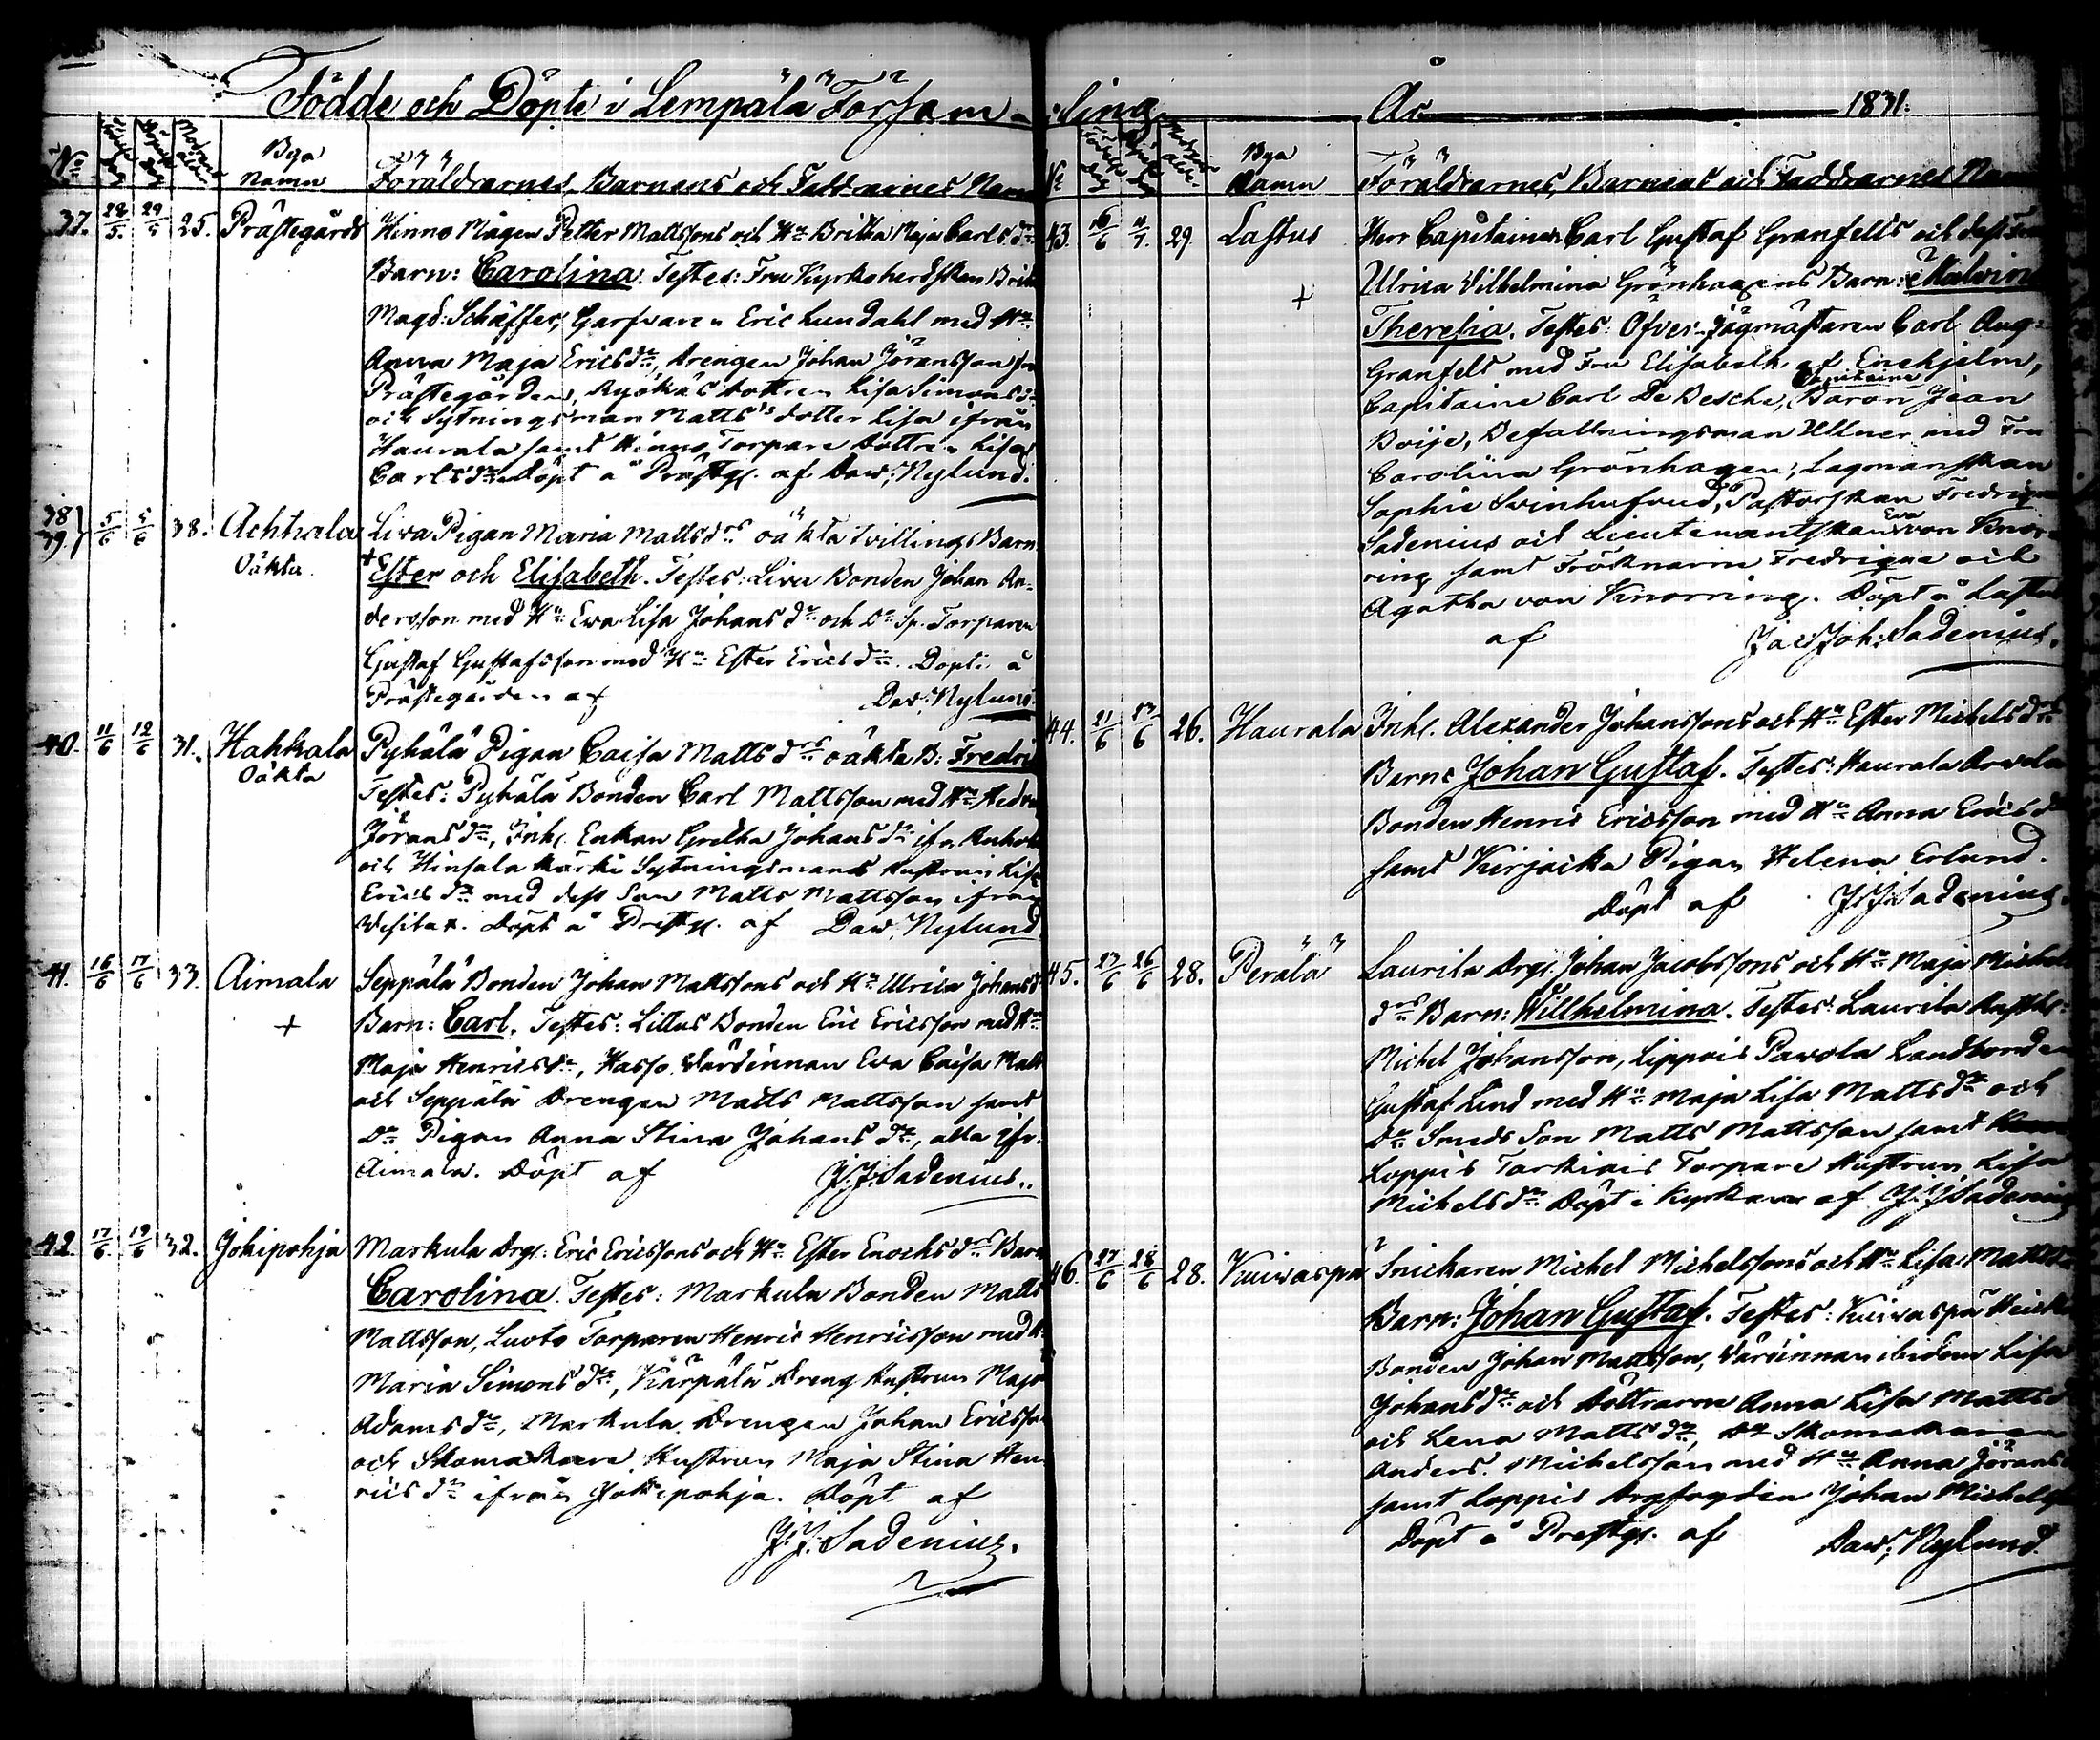 Födde och Döpte i Lempälä Församling År 1831.
No Födelse dag Döpelse dag Modrens ålder Bya Namn Föräldrarnes, Barnens och Faddrarnes Namn
37. 28/5. 29/5 25. Prästegårds Hinno Mågen Petter Mattssons och Hu Britha Maja Carls dr
Barn: Carolina. Testes: Fru Kyrkoherdskan Brit
Magd: Schäffer, Garfvaren Eric Lundahl med Hu
Anna Maja Ericsdr, Drengen Johan Jöransson fr
Prästegården, Ryökäs dottren Lisa Simonsdr
och Sytningsman Matts's dotter Lisa ifrån
Haurala samt Hinno Torpare dottren Lisa
Carlsdr Döpt å Prästg. af Dav: Nylund.
38 39 } 5/6 5/6 38. Achtiala Liva Pigan Maria Mattsdrs oäkta tvillings Barn
Oäkta. + Ester och Elisabeth. Testes: Liva Bonden Johan An-
dersson med Hu Eva Lisa Johans dr och Do Sp. Torparen
Gustaf Gustafsson med Hu Ester Erics dr. Döpte å
Prästegården af Dav: Nylund.
40. 11/6 12/6 31. Hahkala Pyhälä Pigan Caisa Matts drs oäkta B: Fredri
Oäkta Testes: Pyhälä Bonden Carl Mattsson med Hu Hedv
Jörans dr, Inh. Enkan Gretha Johans dr ifr.
och Hinsala Kärki Sytningsmans hustrun Lisa
Erics dr med dess Son Matts Mattsson ifrån
Vesilax. Döpt å Prestg. af Dav: Nylund
41. 16/6 17/6 33. Aimala Seppälä Bonden Johan Mattssons och Hu Ulrica Johansd
+ Barn: Carl. Testes: Littus Bonden Eric Ericsson med Hu
Maja Henricsdr, Hasso Värdinnan Eva Caisa Matts
och Seppälä Drengen Matts Mattsson samt
Do Pigan Anna Stina Johans dr, alla ifr.
Aimala. Döpt af J.J. Sadenius.
42. 17/6. 19/6 32. Jokipohja Markula Drg. Eric Ericssons och Hu Ester Enochs drs Barn
Carolina. Testes: Markula Bonden Matts
Mattsson, Luoto Torparen Henric Henricsson med H
Maria Simons dr, Kärpälä Dreng hustrun Maja
Adams dr, Markula Drengen Johan Ericsson
och Skomakare hustrun Maja Stina Hen-
rics dr ifrån Jokipohja. Döpt af
J.J. Sadenius.
No Födelse dag Döpelse dag Modrens ålder Bya Namn Föräldrarnes, Barnens och Faddrarnes Nam
43. 16/6 11/7 29. Lastus Herr Capitainen Carl Gustaf Granfelts och dess Fru
+ Ulrica Vilhelmina Grönhagens Barn: Malvina
Theresia. Testes: Öfver-Jägmästaren Carl Aug:
Granfelt med Fru Elisabeth af Enehjelm,
Capitaine Carl De Besche, Capitaine Baron Jean
Boije, Befallningsman Ullner med Fru
Carolina Grönhagen, Lagmanskan
Sophie Svinhufvud, Pastorskan Fredrique
Sadenius och Lieutenantskan Eva von Knor-
ring samt Fröknarne Fredrique och
Agatha von Knorring. Döpt å Lastus
af Jac. Joh: Sadenius.
44. 21/6 23/6 26. Haurala Inh. Alexander Johanssons och Hu Ester Michelsdrs
Barn: Johan Gustaf. Testes: Haurala Arvela
Bonden Henric Ericsson med Hu Anna Erics dr
samt Kirjacka Pigan Helena Erlund.
Döpt af J.J. Sadenius.
45. 23/6 26/6 28. Perälä Laurila Drg. Johan Jacobssons och Hu Maja Michels
drs Barn: Willhelmina. Testes: Laurila
Michel Johansson, Lippois Pavola Landbonden
Gustaf Lind med Hu Maja Lisa Matts dr och
Do Smeds Son Matts Mattsson samt
Loppis Torkinis Torpare hustrun Lisa
Michels dr Döpt i Kyrkan af J.J. Sadenius
46. 27/6 28/6 28. Kuivaspä Snickaren Michel Michelssons och Hu Lisa Mattsd
Barn: Johan Gustaf. Testes: Kuivaspä Heickil
Bonden Johan Mattsson, Värdinnan ibidem Lisa
Johans dr och döttrarne Anna Lisa Mattsd
och Lena Matts dr, Do Skomakaren
Anders Michelsson med Hu Anna Jöransd
samt Loppis Drgfogden Johan Michelss
Döpt å Prestg. af Dav: Nylund.